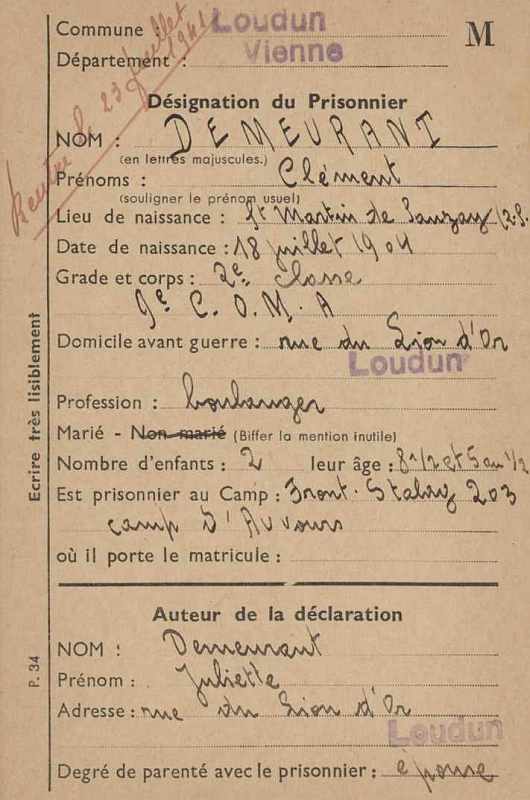 Commune : Loudun
M
Département : Vienne
Rentré le 23 juillet 1941
Désignation du Prisonnier
NOM : DEMEURANT
(en lettres majuscules.)
Prénoms : Clément
(souligner le prénom usuel)
Lieu de naissance : St Martin de Sanzay (2.S.
Date de naissance : 18 juillet 1904
Grade et corps : 2e classe
9e C. O. M. A
Domicile avant guerre : rue du Lion d'Or
Loudun
Profession : boulanger
Marié - Non marié (Biffer la mention inutile)
Nombre d'enfants : 2 leur âge : 8 1/2 et 5 an 1/2
Est prisonnier au Camp : Front. Stalag 203
camp d'Auvours
où il porte le matricule :
Auteur de la déclaration
NOM : Demeurant
Prénom : Juliette
Adresse : rue du Lion d'Or
Loudun
Degré de parenté avec le prisonnier : épouse
Ecrire très lisiblement
P. 34